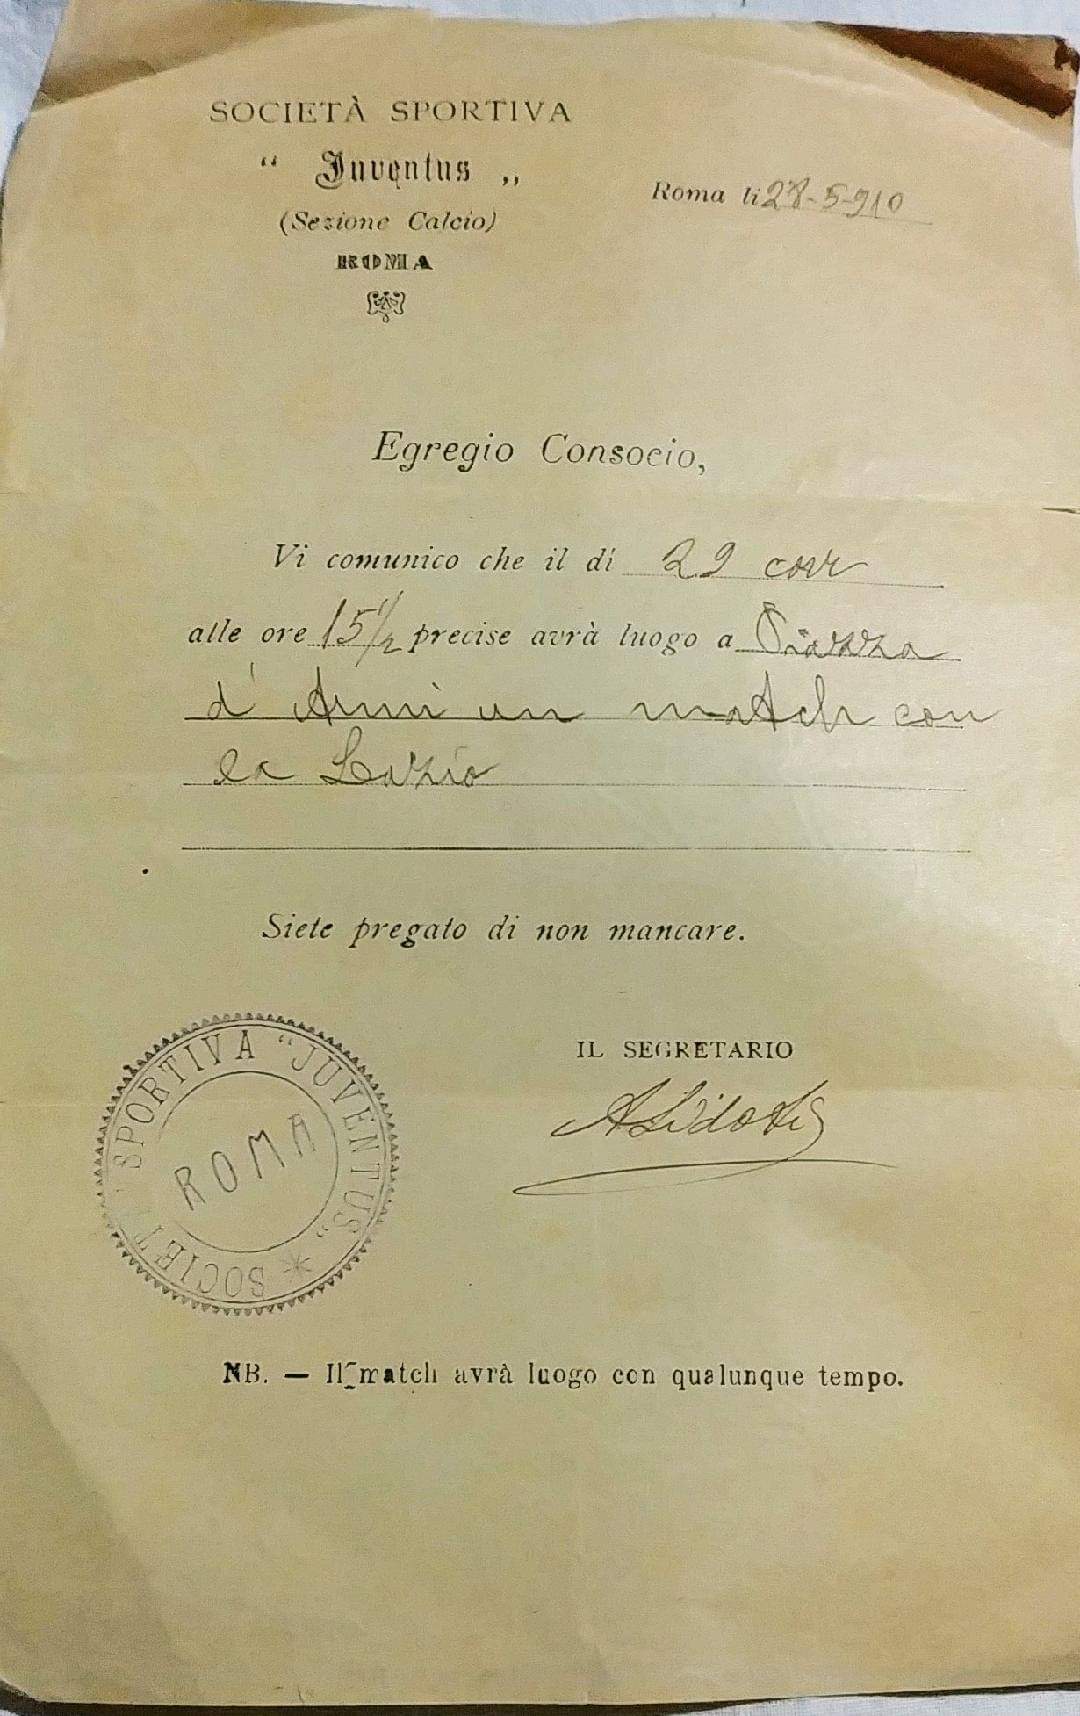 SOCIETÀ SPORTIVA
“ Juventus „
(Sezione Calcio)
ROMA
Roma li 28-5-910
Egregio Consocio,
Vi comunico che il dì 29 corr
alle ore 15 1/2 precise avrà luogo a Piazza
d'Armi un match con
la Lazio
Siete pregato di non mancare.
IL SEGRETARIO
SOCIETÀ SPORTIVA “JUVENTUS„
ROMA
NB. — Il match avrà luogo con qualunque tempo.